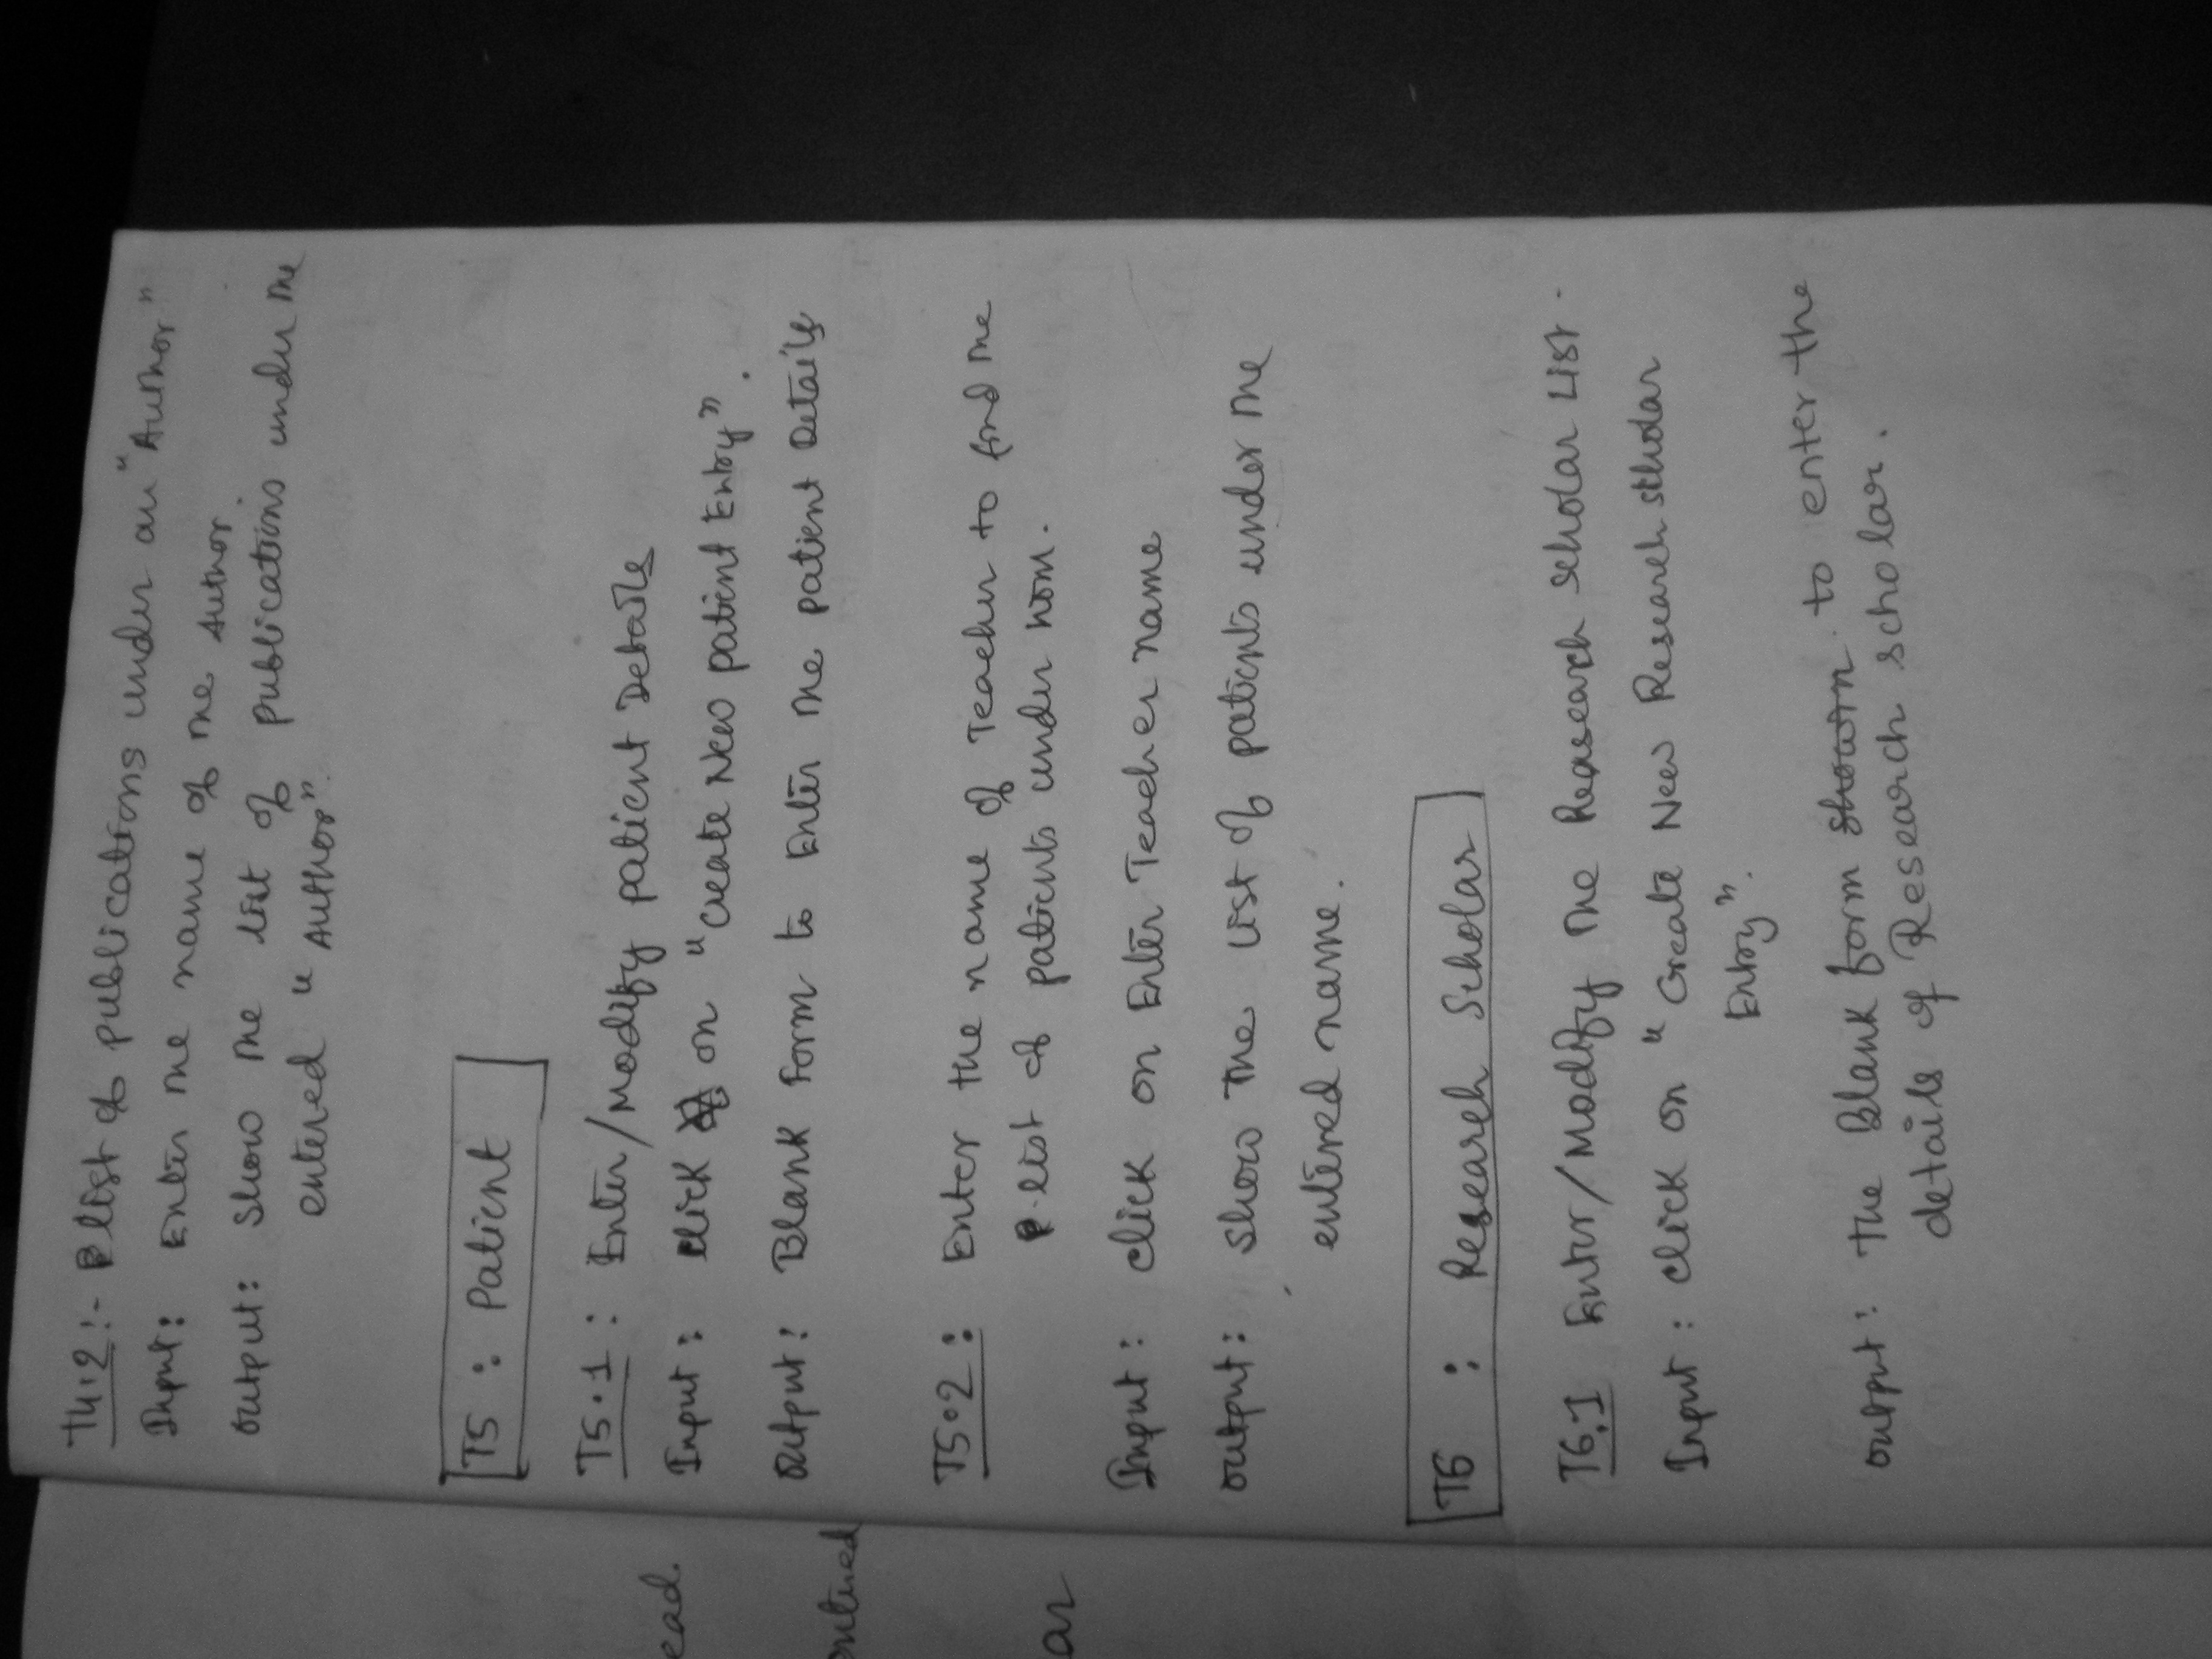 T4.2 :- list of publications under an "Author"
Input: Enter the name of the Author.
output: Show the list of publications under the
entered " Author".
T5 : Patient
T5.1 : Enter/Modify patient Details
Input: click on "Create New patient Entry".
Output: Blank Form to Enter the patient Details
T5.2 : Enter the name of Teacher to find the
list of patients under him.
Input: click on Enter Teacher name
output: Show the list of patients under the
entered name.
T6 : Research Scholar
T6.1 Enter/Modify the Research scholar List.
Input : click on " Create New Research scholar
Entry".
output: the Blank form shown to enter the
details of Research scholar.
ead.
ontined
ar